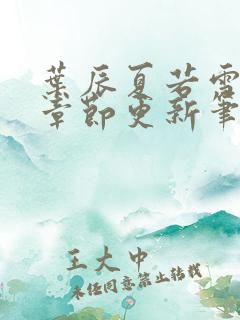 葉辰夏若雪
章節更新筆
王大中
未经同意禁止转载